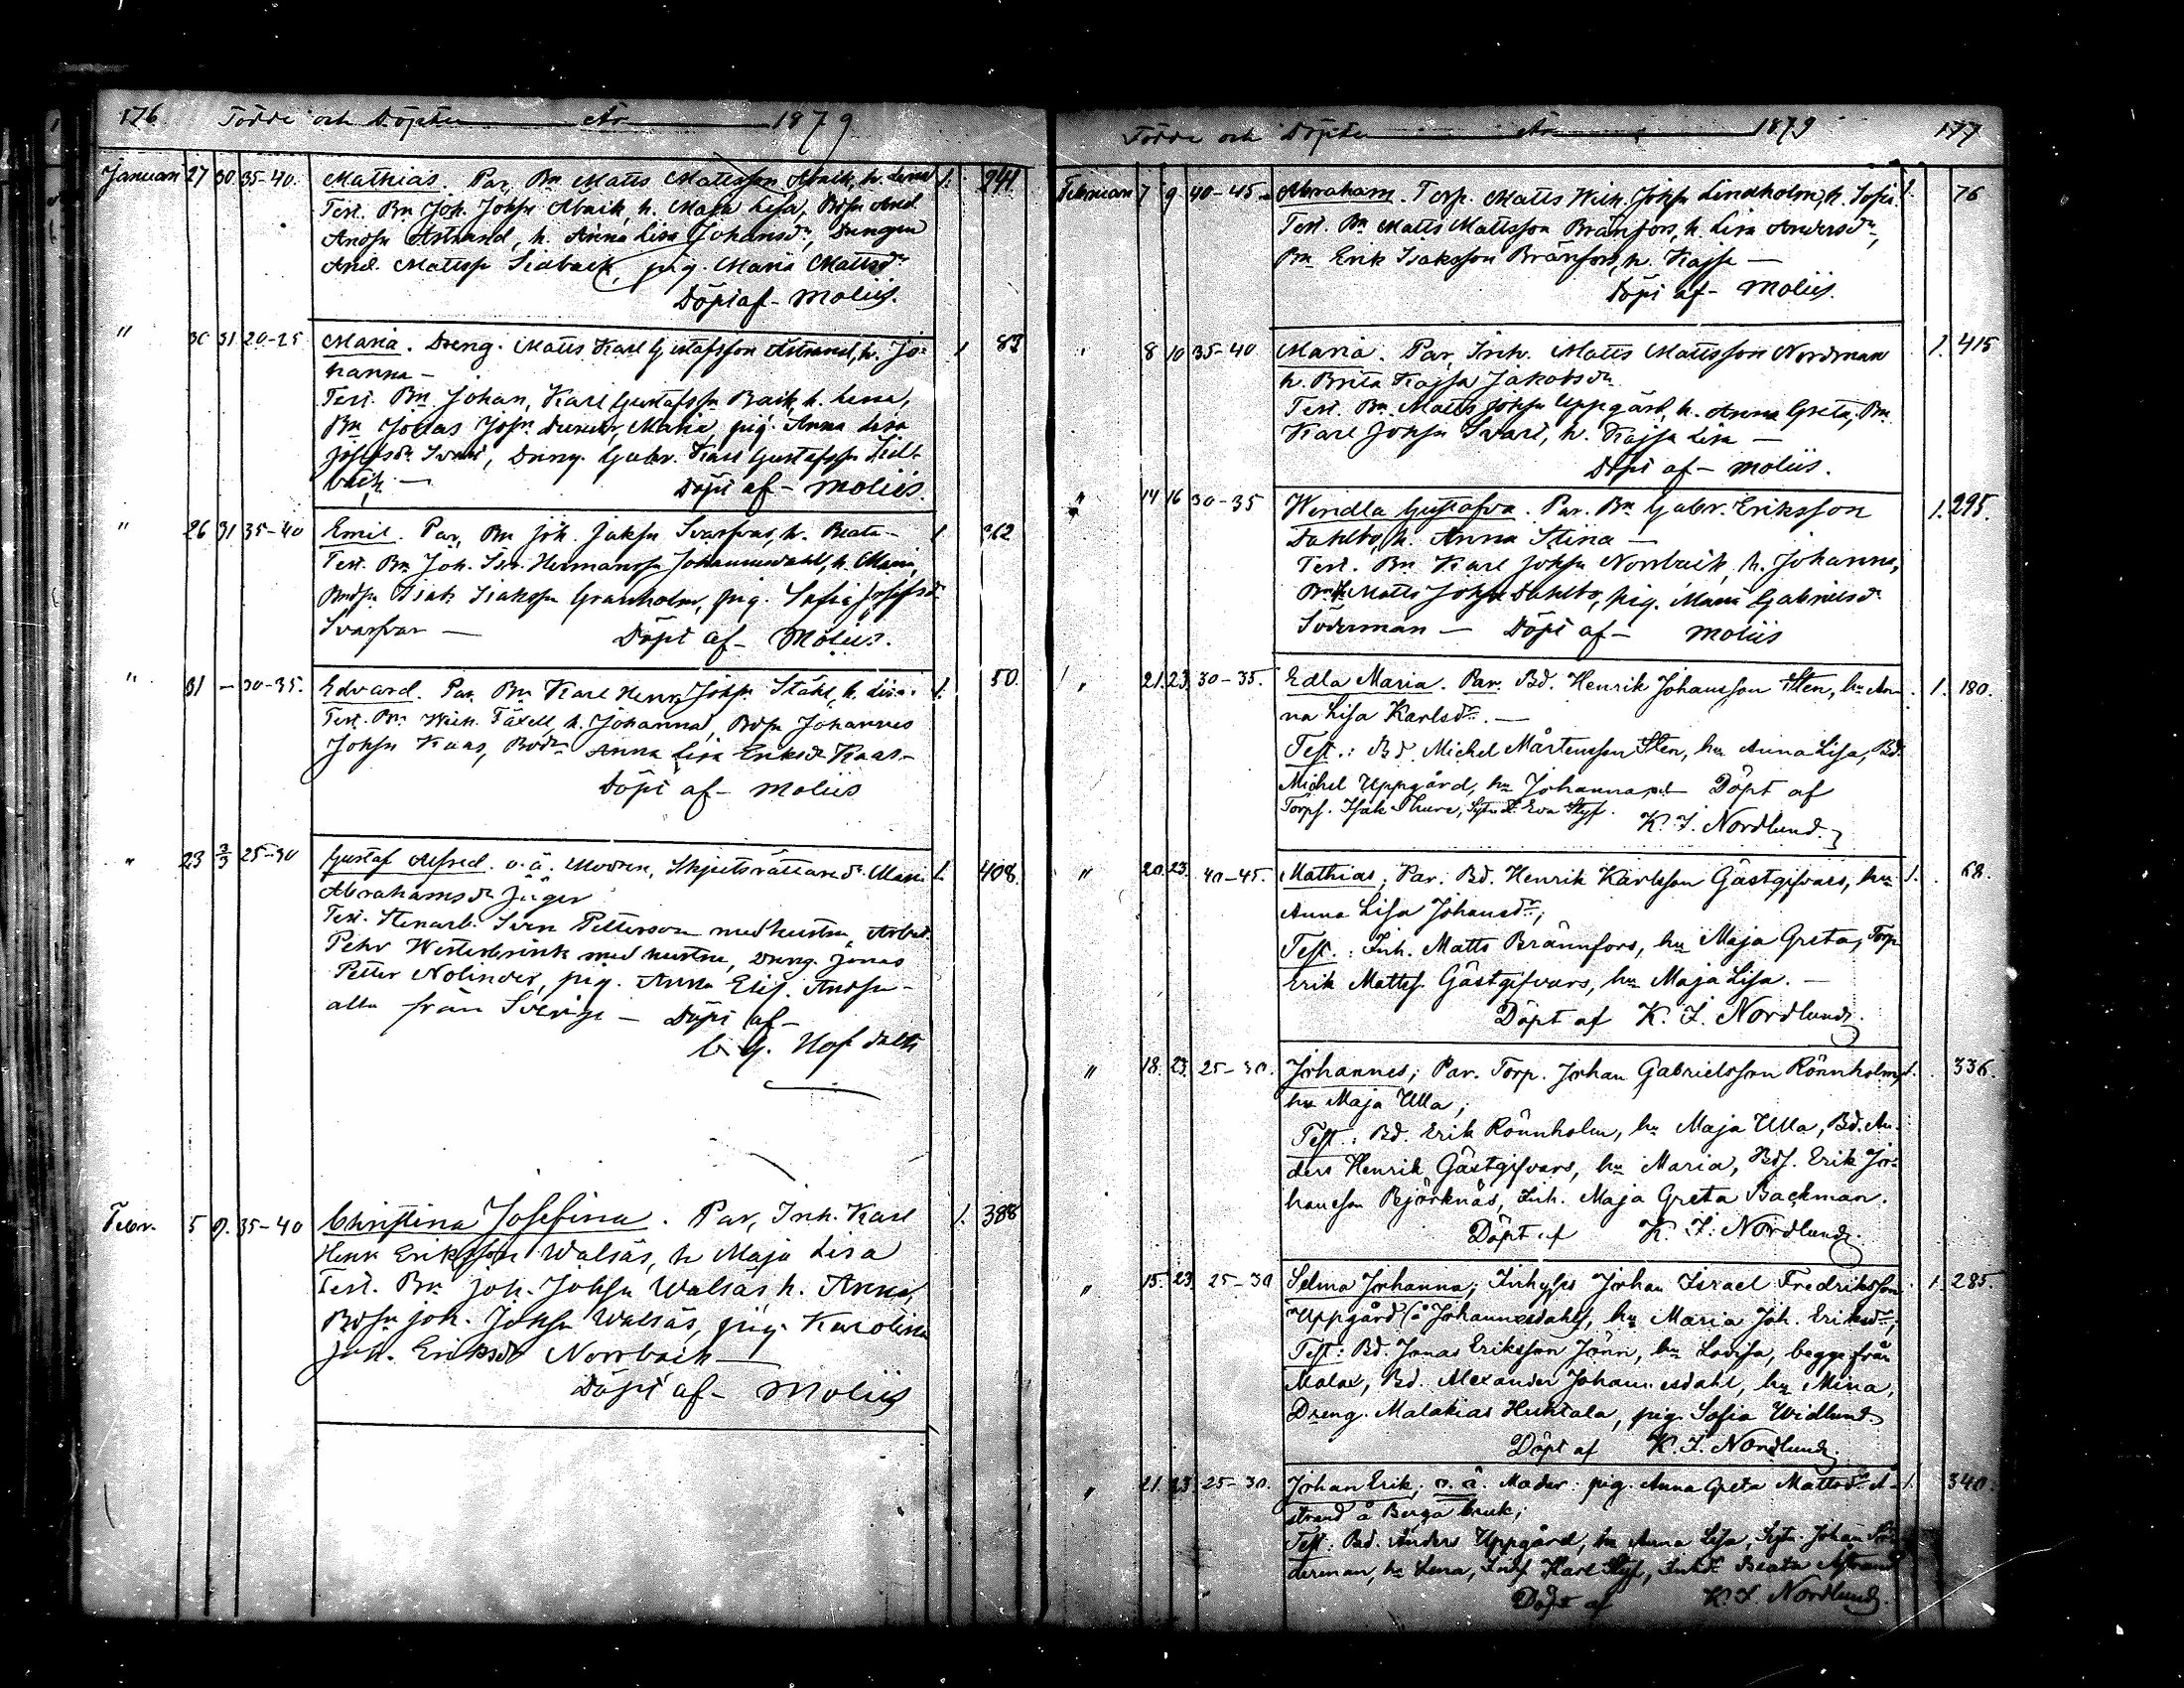 176 Födde och Döpte År 1879
Januari 27 30 35-40. Mathias. Par, Bn Matts Mattsson Aback, h. Lena 1. 241.
Test. Bn Joh. Johsn Aback, h. Maja Lisa, Bdsn And.
Andsn Åstrand, h. Anna Lisa Johansdr, Drengen
And. Mattssn Sidback, pig. Maria Mattsdr
Döpt af - Moliis.
" 30 31 20-25 Maria. Dreng. Matts Karl Gustafsson Åstrand, h. Jo- 1 83
hanna -
Test. Bn Johan, Karl Gustafssn Back, h. Lena,
Bn Jonas Johsn Maria, pig. Anna Lisa
Svart, Dreng. Gabr. Karl Gustafssn Sid-
back - Döpt af - Moliis.
" 26 31 35-40 Emil. Par, Bn Joh. Jaksn Svarfvar, h. Beata - 1 262
Test. Bn Joh. Isr. Hermanssn Johannesdahl, h. Maria,
Bndsn Isak Isakssn Granholm, pig. Sofia Josefsdr
Svarfvar - Döpt af - Moliis.
" 31 - 30-35. Edvard. Par, Bn Karl Henr. Johsn Ståhl, h. Lisa. 1. 50.
Test. Bn Wilh. Taxell, h. Johanna, Bdsn Johannes
Johsn Kaas, Bodr Anna Lisa Eriksdr Kaas -
Döpt af - Moliis
" 23 2/3 25-30 Gustaf Alfred. o. ä. Modren, Skjutsrättaredr Maria 1. 408.
Abrahamsdr Jäger
Test. Stenarb. Sven Petterson med hustru, Arbet.
Pehr Westerbrink med hustru, Dreng. Jonas
Petter Nolinder, pig. Anna Elis. Andsn -
alla från Sverige - Döpt af -
Febr. 5 9. 35-40 Christina Josefina. Par, Inh. Karl 1. 388
Henr. Eriksson Walsäs, h Maja Lisa
Test. Bn Joh. Johsn Walsäs h. Anna,
Bdsn Joh. Johsn Walsäs, pig. Karolina
Joh. Eriksdr Norrback -
Döpt af - Moliis
Födde och Döpte År 1879 177
Februari 7 9 40-45 Abraham. Torp. Matts Wilh. Johsn Lindholm, h. Sofia. 1. 76
Test. Bn Matts Mattsson Bränfors, h. Lisa Andersdr,
Bn Erik Isaksson Bränfors, h. Kajsa -
Döpt af - Moliis.
" 8 10 35-40 Maria. Par, Inh. Matts Mattsson Nordman 1. 415
h. Brita Kajsa Jakobsdr
Test. Bn Matts Johsn Uppgård, h. Anna Greta, Bn
Karl Johsn Svart, h. Kajsa Lisa -
Döpt af - Moliis.
" 14 16 30-35 Wendla Gustafva. Par. Bn Gabr. Eriksson 1. 295.
Dahlbo, h. Anna Stina -
Test. Bn Karl Johsn Norrback, h. Johanna,
Matts Johsn Dahlbo, pig. Maria Gabrielsdr
Söderman - Döpt af - Moliis
" 21. 23. 30-35. Edla Maria. Par. Bd. Henrik Johansson Sten, hu An- 1. 180.
na Lisa Karlsdr. -
Test.: Bd. Michel Mårtensson Sten, hu Anna Lisa, Bd.
Michel Uppgård, hu Johanna Döpt af
Torps. Isak Thure, Sytn. Eva Styf. K. I. Nordlund.
" 20. 23. 40-45. Mathias; Par. Bd. Henrik Karlsson Gästgifvars, hu 1. 68.
Anna Lisa Johansdr;
Test.: Inh. Matts Brännfors, hu Maja Greta, Torp.
Erik Mattss. Gästgifvars, hu Maja Lisa. -
Döpt af K. I. Nordlund.
" 18. 23. 25-30. Johannes; Par. Torp. Johan Gabrielsson Rönnholm, 1. 336.
hu Maja Ulla;
Test.: Bd. Erik Rönnholm, hu Maja Ulla, Bd. An-
ders Henrik Gästgifvars, hu Maria, Bds. Erik Jo-
hansson Bejörknäs, Inh. Maja Greta Backman.
Döpt af K. I. Nordlund.
" 15. 23. 25-30 Selma Johanna; Inhyses Johan Israel Fredriksson 1. 285.
Uppgård (å Johannesdahl), hu Maria Joh. Eriksdr;
Test: Bd. Jonas Eriksson Jönn, hu Lovisa, begge från
Malax, Bd. Alexander Johannesdahl, hu Mina,
Dreng. Malakias Huhtala, pig. Sofia Widlund
Döpt af K. I. Nordlund.
" 21. 23. 25-30. Johan Erik; o. ä. Moder: pig. Anna Greta Mattsdr Å- 1. 340.
strand å Berga bruk;
Test. Bd. Anders Uppgård, hu Anna Lisa, Sytn. Johan Sö-
derman, hu Lena, Inhs Karl Styf, Inh. Beata Åstrand
Döpt af K. I. Nordlund.